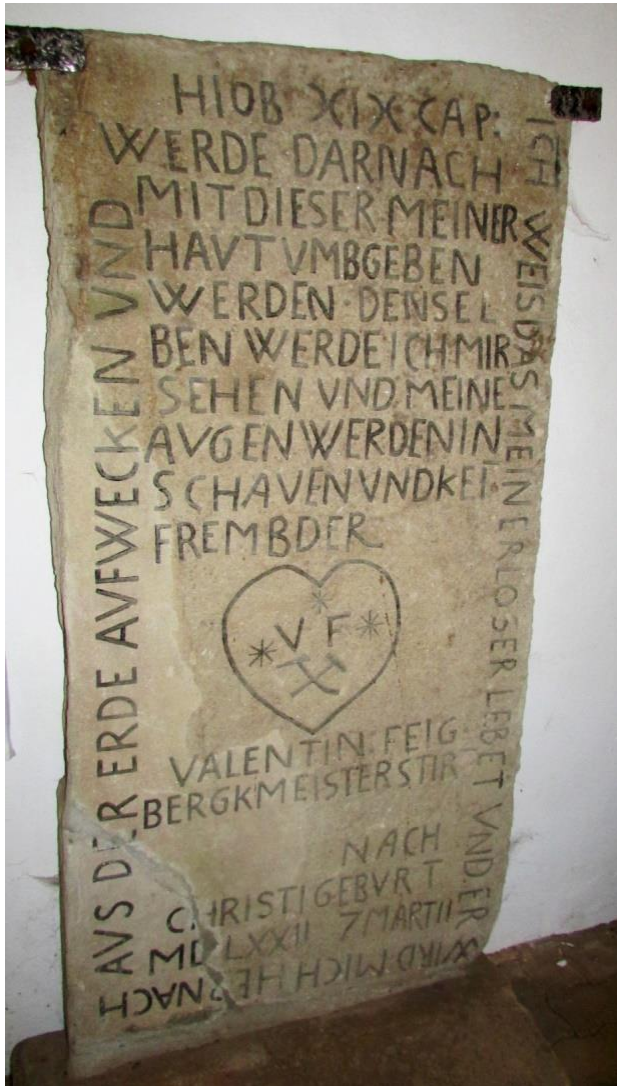 HIOB XIX CAP:
ICH WEIS DAS MEIN ERLOSER LEBET VND ER
WIRD MICH HERNACH
AVS DER ERDE AVFWECKEN VND
WERDE DARNACH
MIT DIESER MEINER
HAVT VMBGEBEN
WERDEN · DENSEL
BEN WERDE ICH MIR
SEHEN VND MEINE
AVGEN WERDEN IN
SCHAVEN VND KEI
FREMBDER
V F
VALENTIN FEIG
BERGKMEISTER STIR
NACH
CHRISTI GEBVRT
7 MARTII